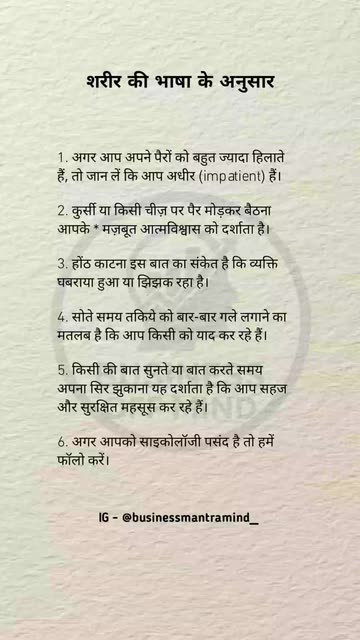 शरीर की भाषा के अनुसार
1. अगर आप अपने पैरों को बहुत ज्यादा हिलाते
हैं, तो जान लें कि आप अधीर (impatient) हैं।
2. कुर्सी या किसी चीज़ पर पैर मोड़कर बैठना
आपके * मज़बूत आत्मविश्वास को दर्शाता है।
3. होंठ काटना इस बात का संकेत है कि व्यक्ति
घबराया हुआ या झिझक रहा है।
4. सोते समय तकिये को बार-बार गले लगाने का
मतलब है कि आप किसी को याद कर रहे हैं।
5. किसी की बात सुनते या बात करते समय
अपना सिर झुकाना यह दर्शाता है कि आप सहज
और सुरक्षित महसूस कर रहे हैं।
6. अगर आपको साइकोलॉजी पसंद है तो हमें
फॉलो करें।
IG - @businessmantramind_